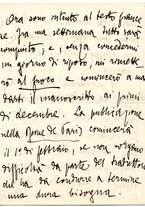 Ora sono intento al testo francese
se. Fra una settimana tutto sarà
compiuto; e, senza concedermi
un giorno di riposo, mi rimetterò
al fuoco e comincerò a mandarti
darti il manoscritto ai primi
di decembre. La pubblicazione
nella
(
di Paris) comincerà
il 1º di febbraio, se non vi siano
difficoltà da parte del traduttore
che ha da condurre a termine
una dura bisogna.